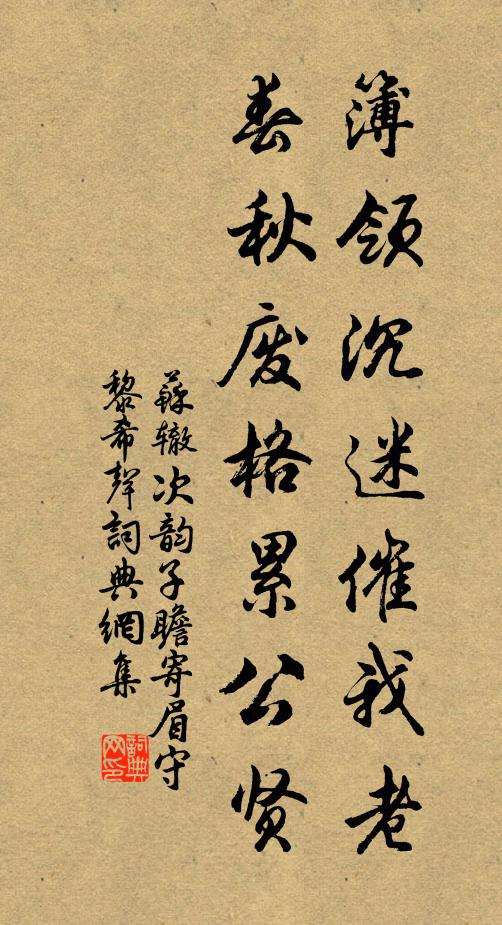 簿领沉迷催我老
春秋废格累公贤
蘇辙次韵子瞻寄眉守
黎希聲詞典網集
詞典
网印